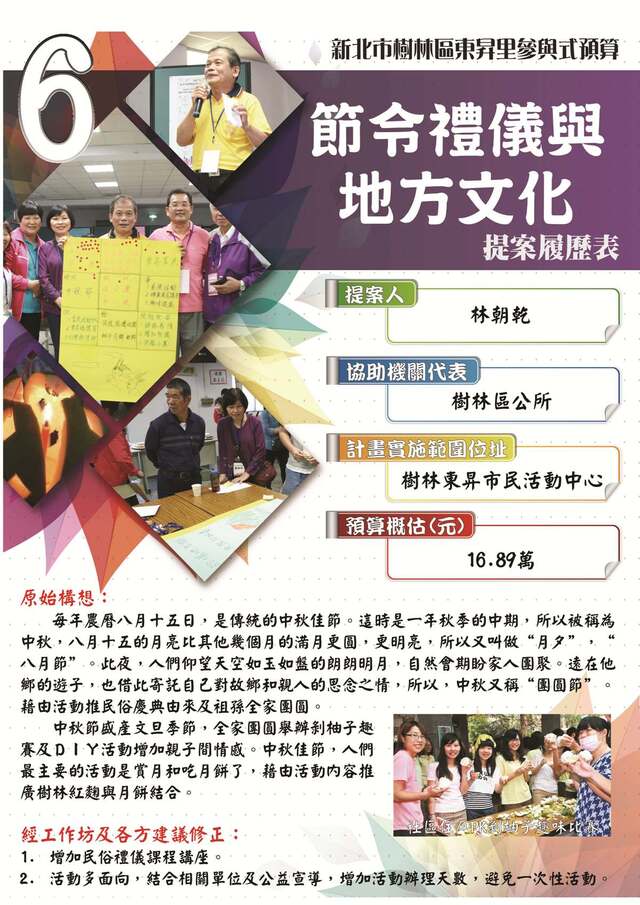 6
新北市樹林區東昇里參與式預算
節令禮儀與
地方文化
提案履歷表
提案人
林朝乾
協助機關代表
樹林區公所
計畫實施範圍位址
樹林東昇市民活動中心
預算概估(元)
16.89萬
原始構想：
每年農曆八月十五日，是傳統的中秋佳節。這時是一年秋季的中期，所以被稱為
中秋，八月十五的月亮比其他幾個月的滿月更圓，更明亮，所以又叫做“月夕”，“
八月節”。此夜，人們仰望天空如玉如盤的朗朗明月，自然會期盼家人團聚。遠在他
鄉的遊子，也借此寄託自己對故鄉和親人的思念之情，所以，中秋又稱“團圓節”。
藉由活動推民俗慶典由來及祖孫全家團圓。
中秋節盛產文旦季節，全家團圓舉辦剝柚子趣
賽及DIY活動增加親子間情感。中秋佳節，人們
最主要的活動是賞月和吃月餅了，藉由活動內容推
廣樹林紅麴與月餅結合。
剝柚子趣味比賽
經工作坊及各方建議修正：
1. 增加民俗禮儀課程講座。
2. 活動多面向，結合相關單位及公益宣導，增加活動辦理天數，避免一次性活動。